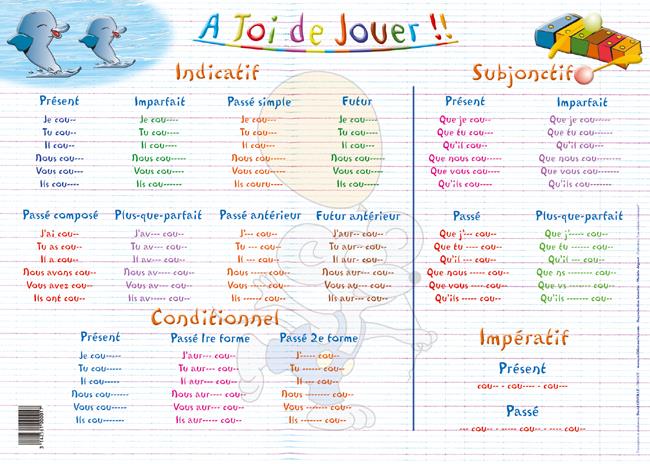 A Toi de Jouer !!
Indicatif
Présent
Je cou--
Tu cou--
Il cou--
Nous cou-----
Vous cou----
Ils cou-----
Imparfait
Je cou----
Tu cou----
Il cou----
Nous cou-----
Vous cou----
Ils cou------
Passé simple
Je cou----
Tu cou----
Il cou----
Nous cou-----
Vous cou-----
Ils couru----
Futur
Je cou----
Tu cou----
Il cou----
Nous cou-----
Vous cou----
Ils cou-----
Passé composé
J'ai cou--
Tu as cou--
Il a cou--
Nous avons cou--
Vous avez cou--
Ils ont cou--
Plus-que-parfait
J'av--- cou--
Tu av--- cou--
Il av--- cou--
Nous av---- cou--
Vous av--- cou--
Ils av----- cou--
Passé antérieur
J'--- cou--
Tu --- cou--
Il --- cou--
Nous ----- cou--
Vous ----- cou--
Ils ------ cou--
Futur antérieur
J'aur-- cou--
Tu aur-- cou--
Il aur-- cou--
Nous aur--- cou--
Vous aur-- cou--
Ils aur--- cou--
Subjonctif
Présent
Que je cou---
Que tu cou----
Qu'il cou---
Que nous cou-----
Que vous cou----
Qu'ils cou-----
Imparfait
Que je cou-----
Que tu cou------
Qu'il cou---
Que nous cou--------
Que vous cou-------
Qu'ils cou-------
Passé
Que j'--- cou--
Que tu ---- cou--
Qu'il --- cou--
Que nous ----- cou--
Que vous ---- cou--
Qu'ils ----- cou--
Plus-que-parfait
Que j'----- cou--
Que tu ------ cou--
Qu'il --- cou--
Que ns ------- cou--
Que vs ------ cou--
Qu'ils ------ cou--
Conditionnel
Présent
Je cou-----
Tu cou-----
Il cou-----
Nous cou------
Vous cou-----
Ils cou-------
Passé 1re forme
J'aur--- cou--
Tu aur--- cou--
Il aur--- cou--
Nous aur---- cou--
Vous aur--- cou--
Ils aur----- cou--
Passé 2e forme
J'----- cou--
Tu ------ cou--
Il --- cou--
Nous ------- cou--
Vous ------ cou--
Ils ------ cou--
Impératif
Présent
cou-- - cou----- - cou----
Passé
---- cou-- - ----- cou-- - ---- cou--